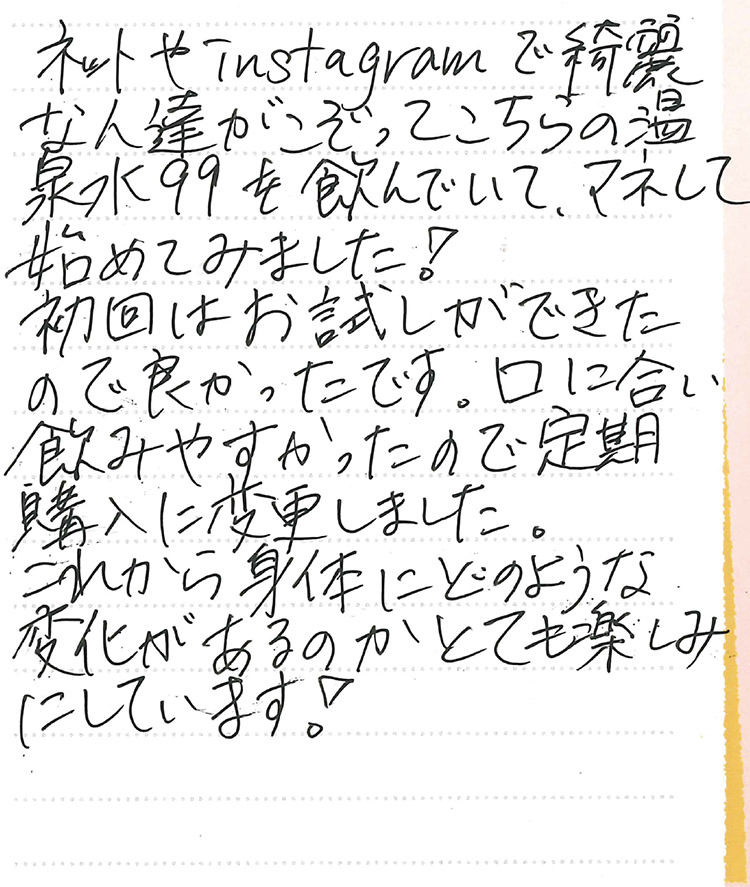 ネットやinstagramで綺麗
な人達がこぞってこちらの温
泉水99を飲んでいて、マネして
始めてみました!
初回はお試しができた
ので良かったです。口に合い
飲みやすかったので定期
購入に変更しました。
これから身体にどのような
変化があるのかとても楽しみ
にしています!